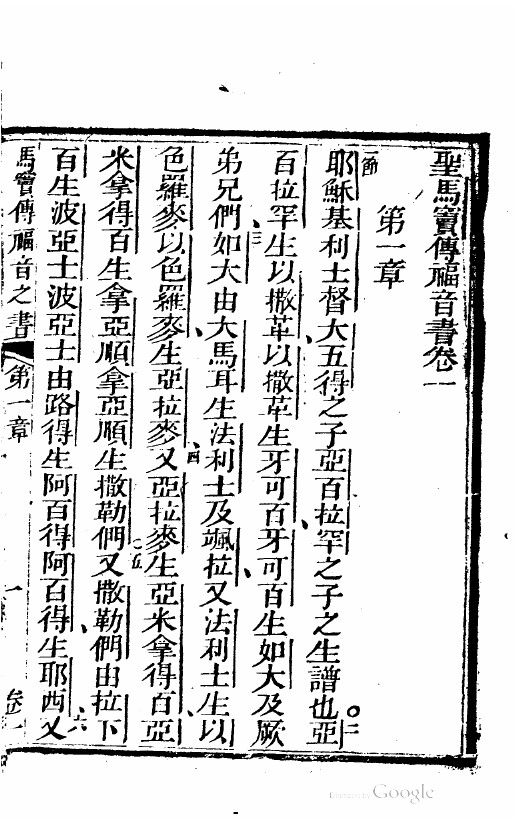 聖馬竇傳福音書卷一
第一章
一節
耶穌基利士督大五得之子亞百拉罕之子之生譜也。二亞
百拉罕生以撒革、以撒革生牙可百、牙可百生如大及厥
弟兄們、三如大由大馬耳生法利士及颯拉、又法利士生以
色羅麥、以色羅麥生亞拉麥、四又亞拉麥生亞米拿得百、亞
米拿得百生拿亞順、拿亞順生撒勒們、五又撒勒們由拉下
百生波亞士、波亞士由路得生阿百得、阿百得生耶西、六又
馬竇傳福音之書 第一章 一 卷一
Digitized by Google